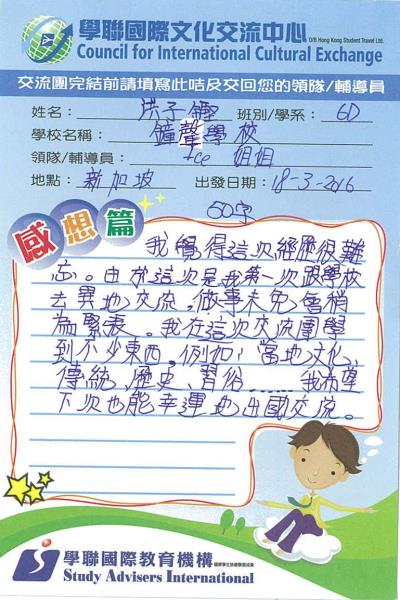 學聯國際文化交流中心 O/B Hong Kong Student Travel Ltd.
Council for International Cultural Exchange
交流團完結前請填寫此咭及交回您的領隊/輔導員
姓名： 洪子 班別/學系： 6D
學校名稱： 鐘聲學校
領隊/輔導員： Ice 姐姐
地點： 新加坡 出發日期： 18-3-2016
60字
感想篇
我覺得這次經歷很難
忘。由於這次是我第一次跟學校
去異地交流，做事未免會稍
為緊張。我在這次交流團學
到不少東西，例如：當地文化、
傳統、歷史、習俗……我希望
下次也能幸運地出國交流。
學聯國際教育機構
Study Advisers International